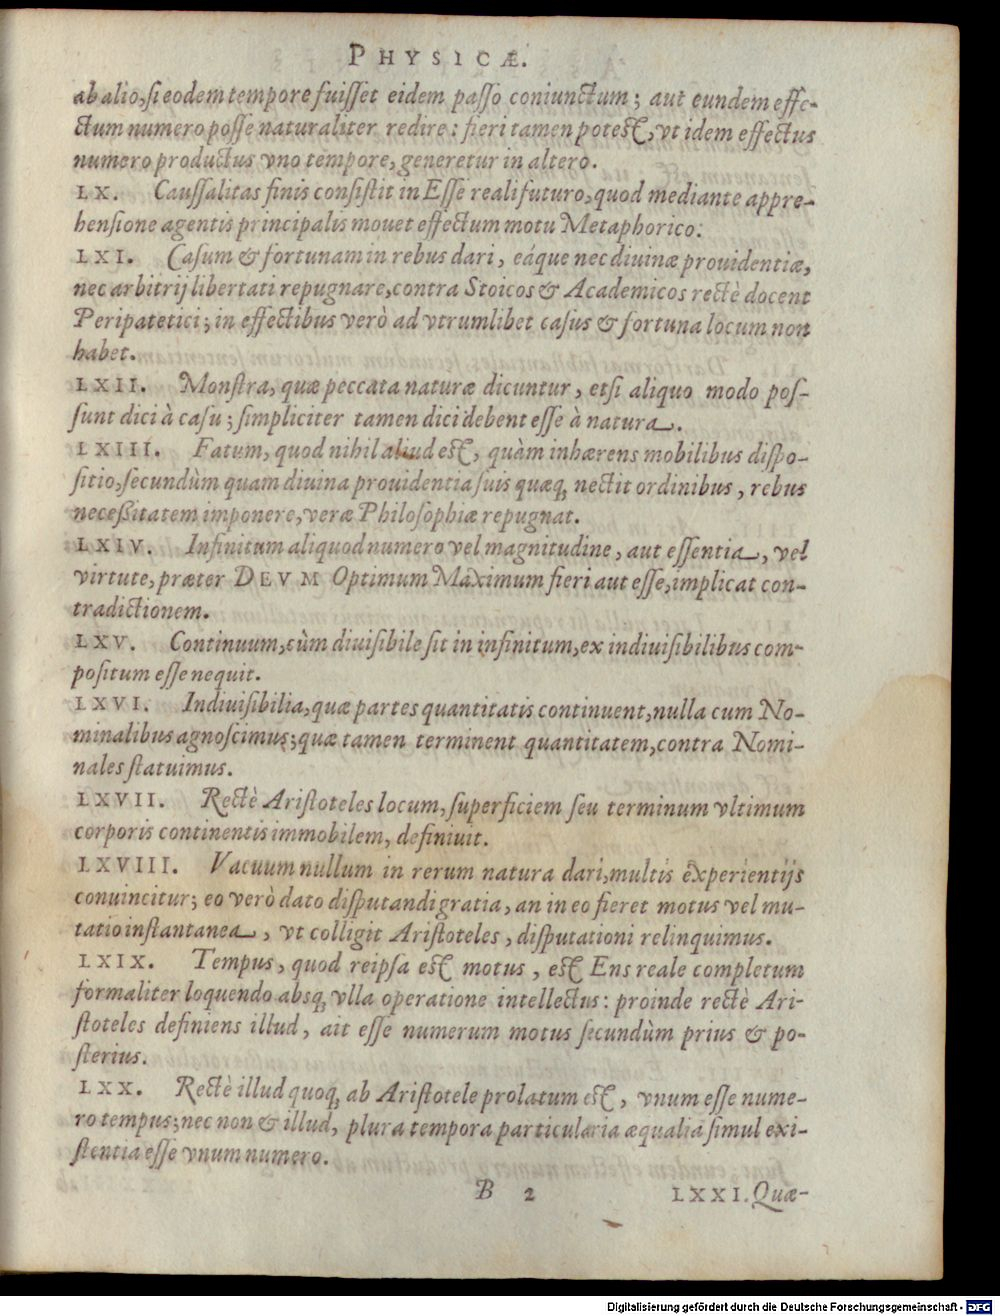 PHYSICÆ.
ab alio, si eodem tempore fuisset eidem passo coniunctum; aut eundem effe-
ctum numero posse naturaliter redire: fieri tamen potest, vt idem effectus
numero productus vno tempore, generetur in altero.
LX. Caussalitas finis consistit in Esse reali futuro, quod mediante appre-
hensione agentis principalis mouet effectum motu Metaphorico.
LXI. Casum & fortunam in rebus dari, eáque nec diuinæ prouidentiæ,
nec arbitrij libertati repugnare, contra Stoicos & Academicos rectè docent
Peripatetici; in effectibus verò ad vtrumlibet casus & fortuna locum non
habet.
LXII. Monstra, quæ peccata naturæ dicuntur, etsi aliquo modo pos-
sunt dici à casu; simpliciter tamen dici debent esse à natura.
LXIII. Fatum, quod nihil aliud est, quàm inhærens mobilibus dispo-
sitio, secundùm quam diuina prouidentia suis quæq; nectit ordinibus, rebus
necessitatem imponere, veræ Philosophiæ repugnat.
LXIV. Infinitum aliquod numero vel magnitudine, aut essentia, vel
virtute, præter DEVM Optimum Maximum fieri aut esse, implicat con-
tradictionem.
LXV. Continuum, cùm diuisibile sit in infinitum, ex indiuisibilibus com-
positum esse nequit.
LXVI. Indiuisibilia, quæ partes quantitatis continuent, nulla cum No-
minalibus agnoscimus; quæ tamen terminent quantitatem, contra Nomi-
nales statuimus.
LXVII. Rectè Aristoteles locum, superficiem seu terminum vltimum
corporis continentis immobilem, definiuit.
LXVIII. Vacuum nullum in rerum natura dari, multis experientijs
conuincitur; eo verò dato disputandi gratia, an in eo fieret motus vel mu-
tatio instantanea, vt colligit Aristoteles, disputationi relinquimus.
LXIX. Tempus, quod reipsa est motus, est Ens reale completum
formaliter loquendo absq; vlla operatione intellectus: proinde rectè Ari-
stoteles definiens illud, ait esse numerum motus secundùm prius & po-
sterius.
LXX. Rectè illud quoq; ab Aristotele prolatum est, vnum esse nume-
ro tempus; nec non & illud, plura tempora particularia æqualia simul exi-
stentia esse vnum numero.
B 2 LXXI. Quæ-
Digitalisierung gefördert durch die Deutsche Forschungsgemeinschaft - DFG